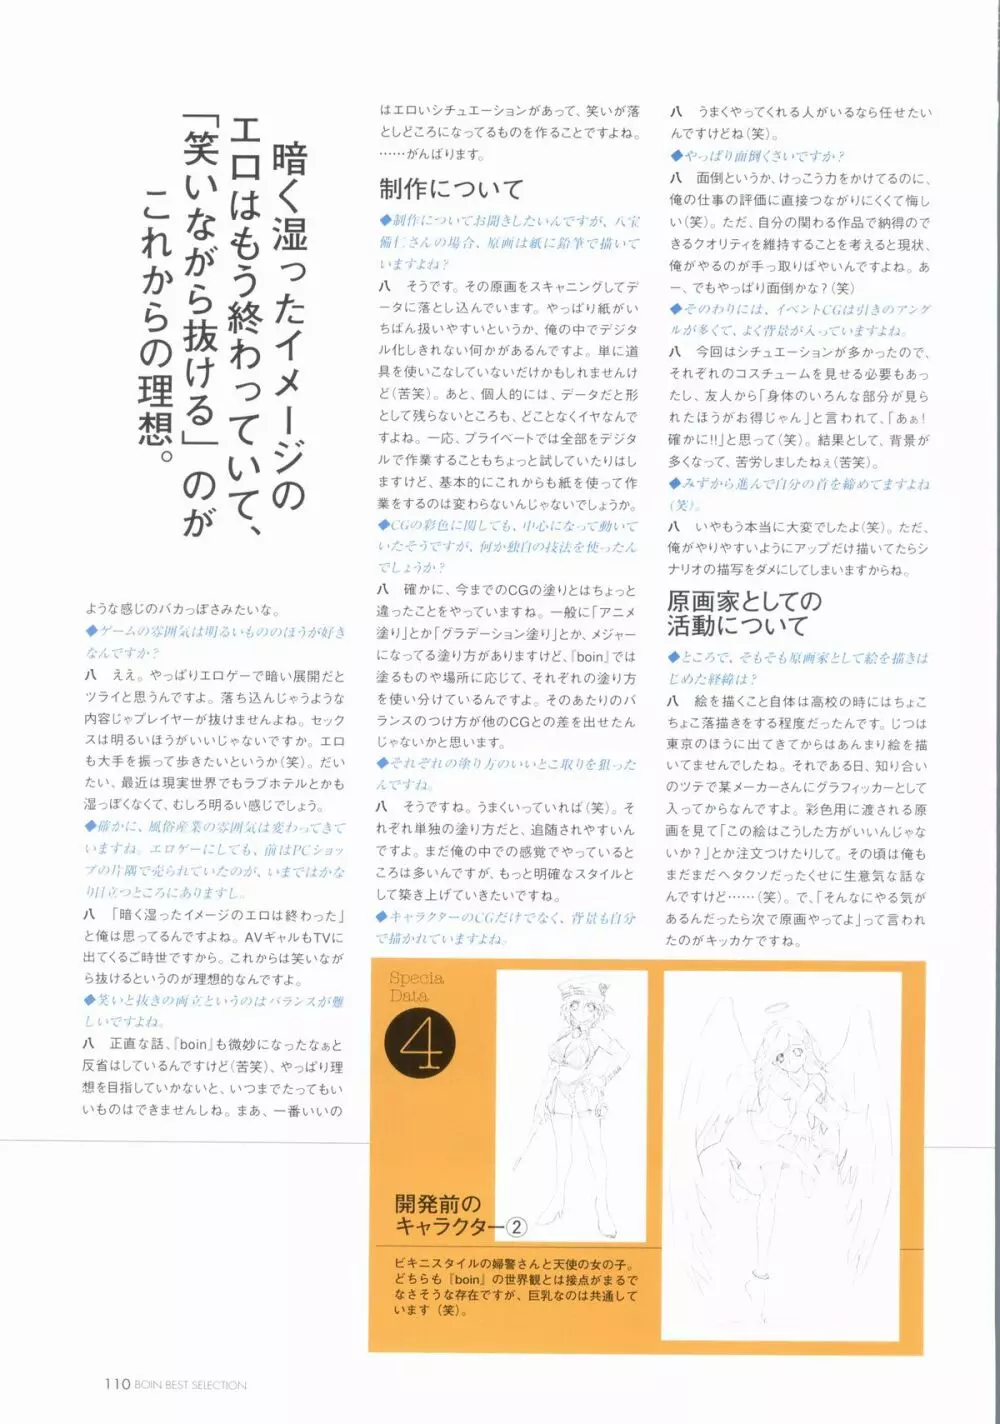 暗く湿ったイメージの
エロはもう終わっていて、
「笑いながら抜ける」のが
これからの理想。
ような感じのバカっぽさみたいな。
◆ゲームの雰囲気は明るいもののほうが好き
なんですか？
八　ええ。やっぱりエロゲーで暗い展開だと
ツライと思うんですよ。落ち込んじゃうような
内容じゃプレイヤーが抜けませんよね。セック
スは明るいほうがいいじゃないですか。エロ
も大手を振って歩きたいというか（笑）。だい
たい、最近は現実世界でもラブホテルとかも
湿っぽくなくて、むしろ明るい感じでしょう。
◆確かに、風俗産業の雰囲気は変わってきて
いますね。エロゲーにしても、前はPCショッ
プの片隅で売られていたのが、いまではかな
り目立つところにありますし。
八　「暗く湿ったイメージのエロは終わった」
と俺は思ってるんですよね。AVギャルもTVに
出てくるご時世ですから。これからは笑いなが
ら抜けるというのが理想的なんですよ。
◆笑いと抜きの両立というのはバランスが難
しいですよね。
八　正直な話、『boin』も微妙になったなぁと
反省はしているんですけど（苦笑）、やっぱり理
想を目指していかないと、いつまでたってもい
いものはできませんしね。まあ、一番いいの
はエロいシチュエーションがあって、笑いが落
としどころになってるものを作ることですよね。
……がんばります。
制作について
◆制作についてお聞きしたいんですが、八宝
備仁さんの場合、原画は紙に鉛筆で描いて
いますよね？
八　そうです。その原画をスキャニングしてデ
ータに落とし込んでいます。やっぱり紙がい
ちばん扱いやすいというか、俺の中でデジタ
ル化しきれない何かがあるんですよ。単に道
具を使いこなしていないだけかもしれませんけ
ど（苦笑）。あと、個人的には、データだと形
として残らないところも、どことなくイヤなんで
すよね。一応、プライベートでは全部をデジタ
ルで作業することもちょっと試していたりはし
ますけど、基本的にこれからも紙を使って作
業をするのは変わらないんじゃないでしょうか。
◆CGの彩色に関しても、中心になって動いて
いたそうですが、何か独自の技法を使ったん
でしょうか？
八　確かに、今までのCGの塗りとはちょっと
違ったことをやっていますね。一般に「アニメ
塗り」とか「グラデーション塗り」とか、メジャー
になってる塗り方がありますけど、『boin』では
塗るものや場所に応じて、それぞれの塗り方
を使い分けているんですよ。そのあたりのバ
ランスのつけ方が他のCGとの差を出せたん
じゃないかと思います。
◆それぞれの塗り方のいいとこ取りを狙った
んですね。
八　そうですね。うまくいっていれば（笑）。そ
れぞれ単独の塗り方だと、追随されやすいん
ですよ。まだ俺の中での感覚でやっていると
ころは多いんですが、もっと明確なスタイルと
して築き上げていきたいですね。
◆キャラクターのCGだけでなく、背景も自分
で描かれていますよね。
八　うまくやってくれる人がいるなら任せたい
んですけどね（笑）。
◆やっぱり面倒くさいですか？
八　面倒というか、けっこう力をかけてるのに、
俺の仕事の評価に直接つながりにくくて悔し
い（笑）。ただ、自分の関わる作品で納得ので
きるクオリティを維持することを考えると現状、
俺がやるのが手っ取りばやいんですよね。あ
ー、でもやっぱり面倒かな？（笑）
◆そのわりには、イベントCGは引きのアング
ルが多くて、よく背景が入っていますよね。
八　今回はシチュエーションが多かったので、
それぞれのコスチュームを見せる必要もあっ
たし、友人から「身体のいろんな部分が見ら
れたほうがお得じゃん」と言われて、「あぁ！
確かに!!」と思って（笑）。結果として、背景が
多くなって、苦労しましたねぇ（苦笑）。
◆みずから進んで自分の首を締めてますよね
（笑）。
八　いやもう本当に大変でしたよ（笑）。ただ、
俺がやりやすいようにアップだけ描いてたらシ
ナリオの描写をダメにしてしまいますからね。
原画家としての
活動について
◆ところで、そもそも原画家として絵を描きは
じめた経緯は？
八　絵を描くこと自体は高校の時にはちょこ
ちょこ落描きをする程度だったんです。じつは
東京のほうに出てきてからはあんまり絵を描
いてませんでしたね。それである日、知り合い
のツテで某メーカーさんにグラフィッカーとして
入ってからなんですよ。彩色用に渡される原
画を見て「この絵はこうした方がいいんじゃな
いか？」とか注文つけたりして。その頃は俺も
まだまだヘタクソだったくせに生意気な話な
んですけど……（笑）。で、「そんなにやる気が
あるんだったら次で原画やってよ」って言われ
たのがキッカケですね。
Specia
Data
4
開発前の
キャラクター②
ビキニスタイルの婦警さんと天使の女の子。
どちらも『boin』の世界観とは接点がまるで
なさそうな存在ですが、巨乳なのは共通して
います（笑）。
110 BOIN BEST SELECTION